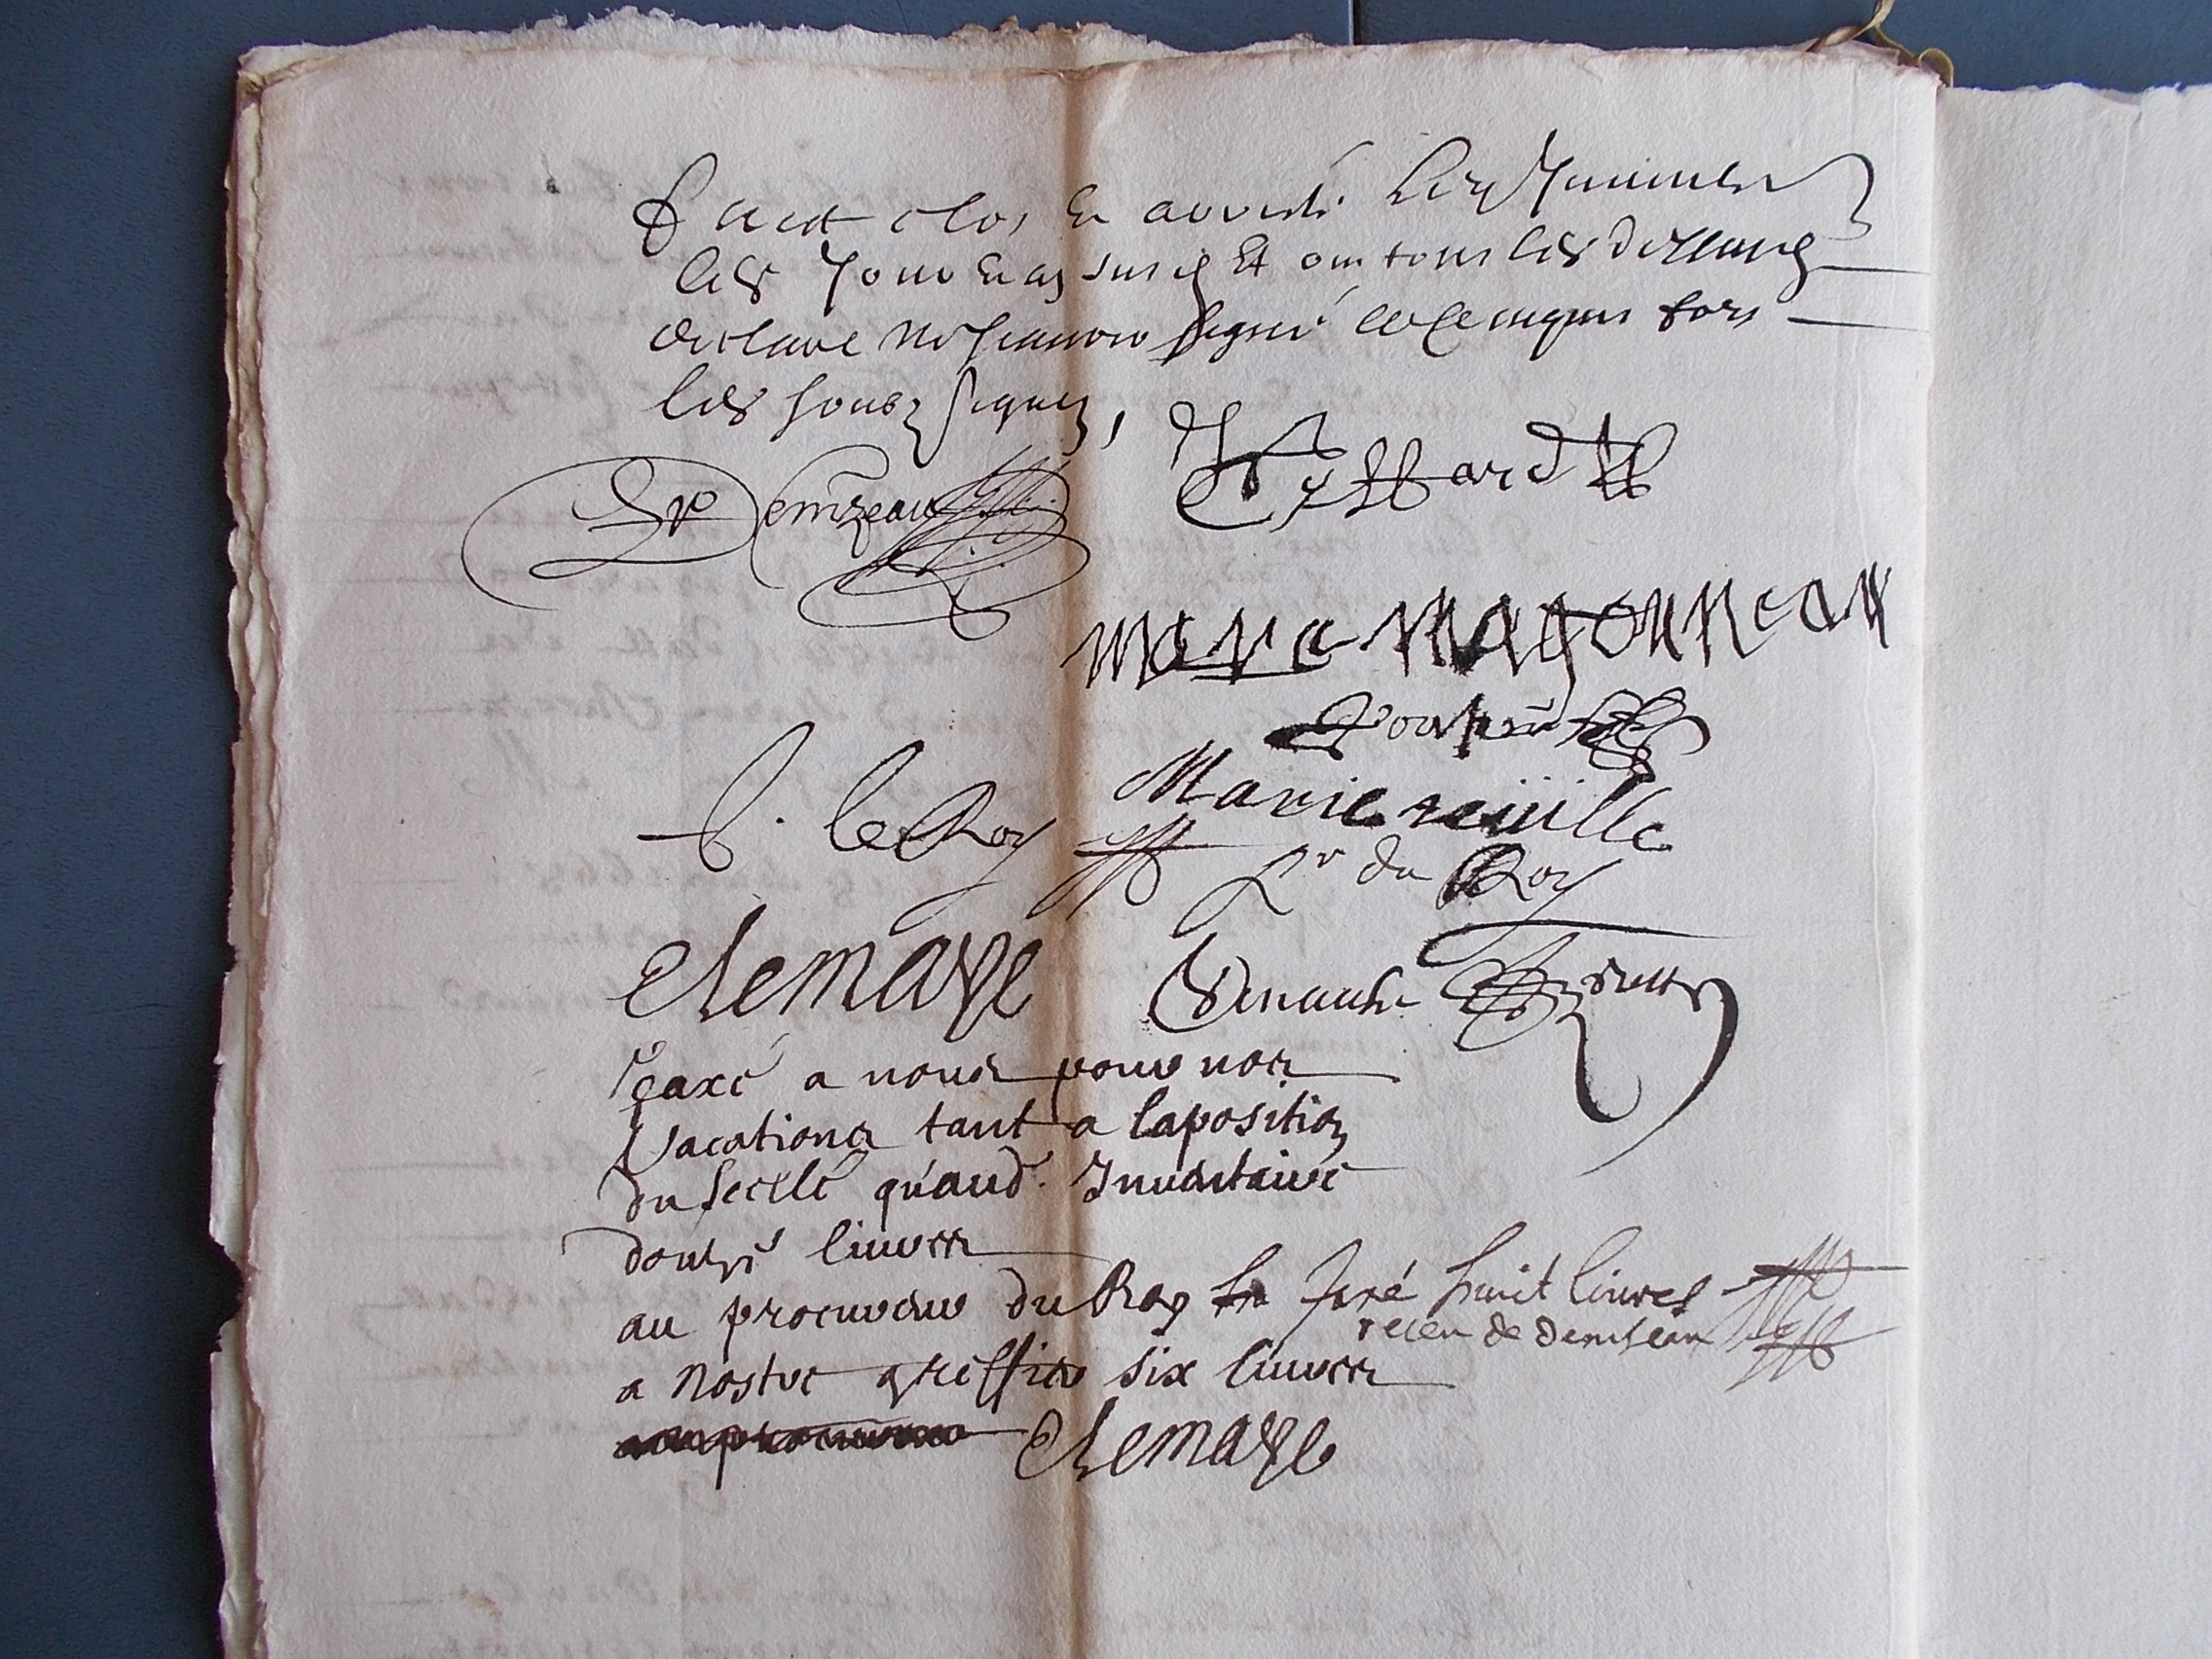 Faict clos et arresté led Inventaire
les Jour et an susd Et ont tous les dessusd
declaré ne scavoir signé de ce enquis fors
les soubz signez,
Demzeau
marc massonneau
f. le Roy
Marie reuille
pr du Roy
Clemaye
Taxé a nous pour nos
Vacations tant a laposition
du scellé quaud. Inventaire
douze livres
au procureur du Roy taxé huit livres
receu de demseau
a nostre greffier six livres
Clemaye